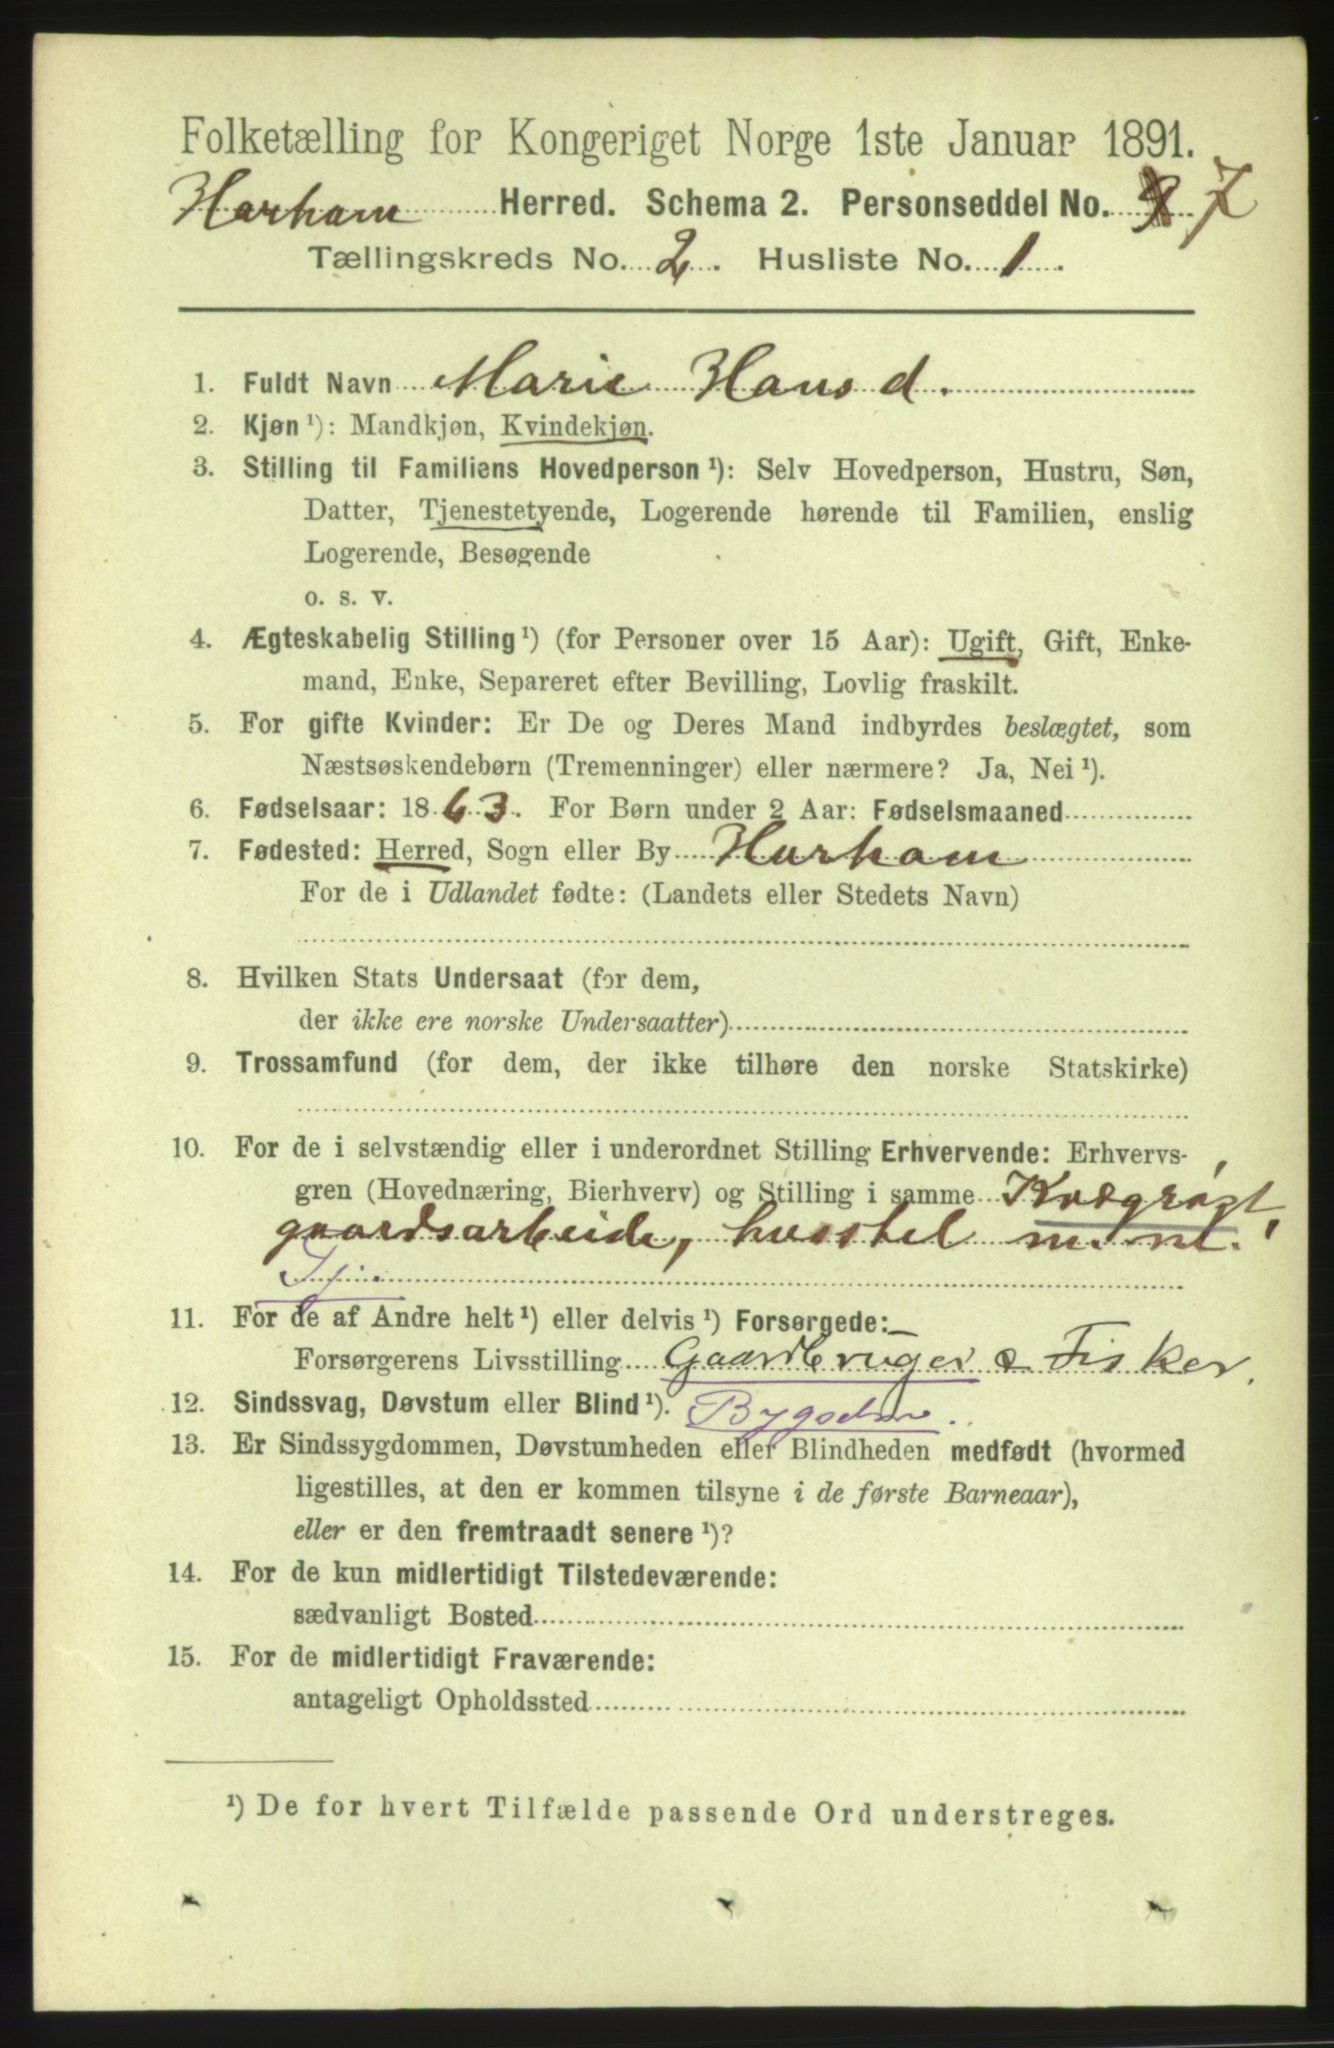 Folketælling for Kongeriget Norge 1ste Januar 1891.
Harham Herred. Schema 2. Personseddel No. 7
Tællingskreds No. 2. Husliste No. 1.
1. Fuldt Navn Marie Hansd.
2. Kjøn ¹): Mandkjøn, Kvindekjøn.
3. Stilling til Familiens Hovedperson ¹): Selv Hovedperson, Hustru, Søn,
Datter, Tjenestetyende, Logerende hørende til Familien, enslig
Logerende, Besøgende
o. s. v.
4. Ægteskabelig Stilling ¹) (for Personer over 15 Aar): Ugift, Gift, Enke-
mand, Enke, Separeret efter Bevilling, Lovlig fraskilt.
5. For gifte Kvinder: Er De og Deres Mand indbyrdes beslægtet, som
Næstsøskendebørn (Tremenninger) eller nærmere? Ja, Nei ¹).
6. Fødselsaar: 1863. For Børn under 2 Aar: Fødselsmaaned
7. Fødested: Herred, Sogn eller By Harham
For de i Udlandet fødte: (Landets eller Stedets Navn)
8. Hvilken Stats Undersaat (for dem,
der ikke ere norske Undersaatter)
9. Trossamfund (for dem, der ikke tilhøre den norske Statskirke)
10. For de i selvstændig eller i underordnet Stilling Erhvervende: Erhvervs-
gren (Hovednæring, Bierhverv) og Stilling i samme Kvægrøgt,
gaardsarbeide, husstel m. m.
Tj.
11. For de af Andre helt ¹) eller delvis ¹) Forsørgede:
Forsørgerens Livsstilling Gaardbruger & Fisker.
12. Sindssvag, Døvstum eller Blind ¹). Bygselm.
13. Er Sindssygdommen, Døvstumheden eller Blindheden medfødt (hvormed
ligestilles, at den er kommen tilsyne i de første Barneaar),
eller er den fremtraadt senere ¹)?
14. For de kun midlertidigt Tilstedeværende:
sædvanligt Bosted
15. For de midlertidigt Fraværende:
antageligt Opholdssted
¹) De for hvert Tilfælde passende Ord understreges.